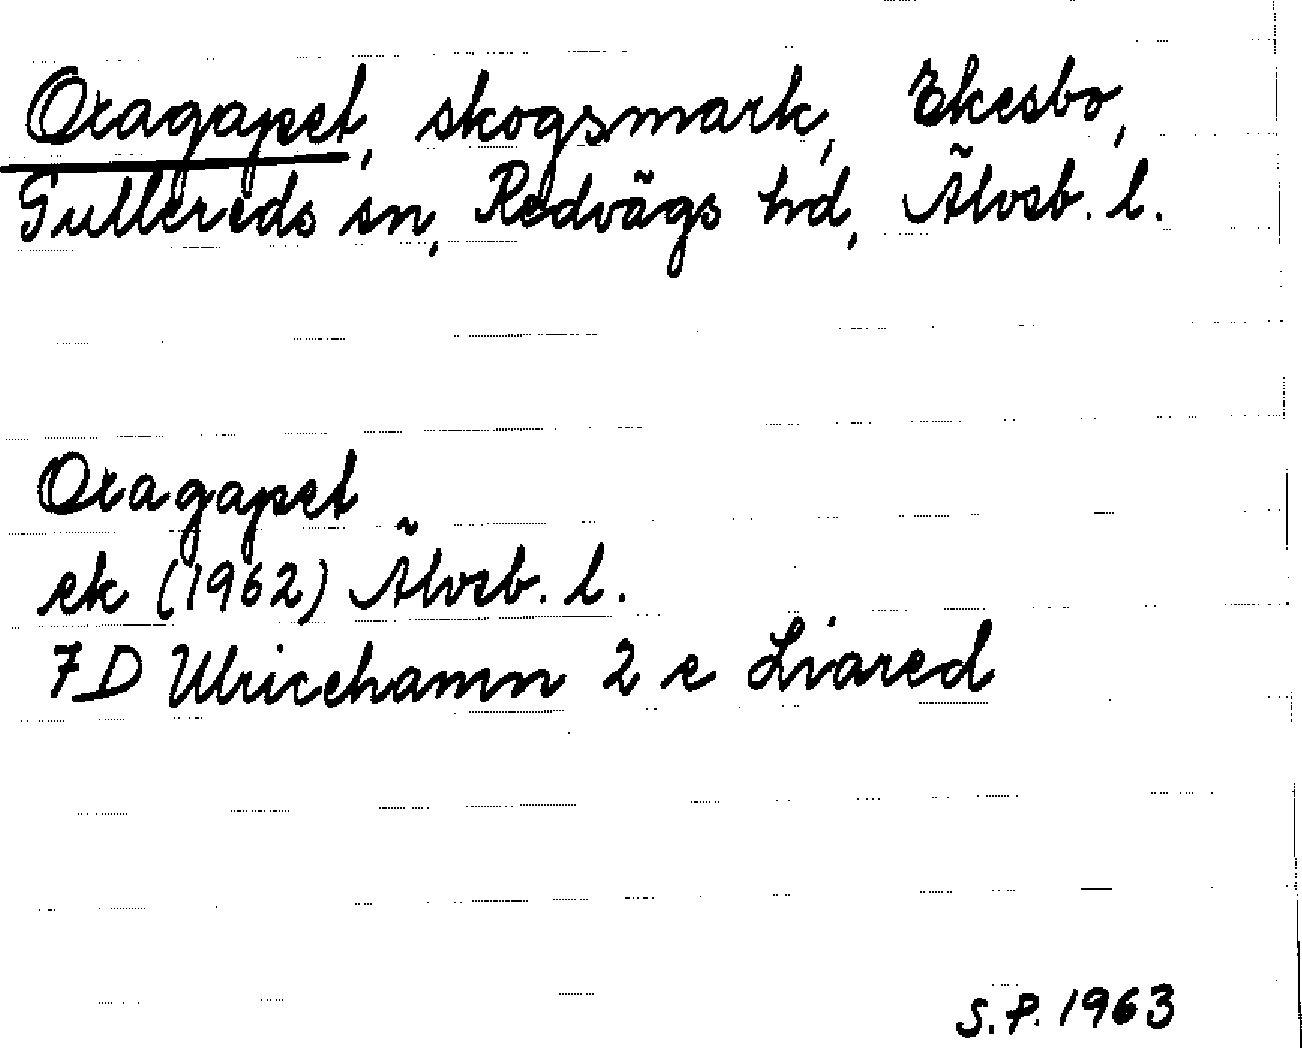 Oxagapet, skogsmark, Ekesbo,
Gullereds sn, Redvägs hd, Älvsb. l.
Oxagapet
ek (1962) Älvsb. l.
7D Ulricehamn 2 e Liared
S.P. 1963